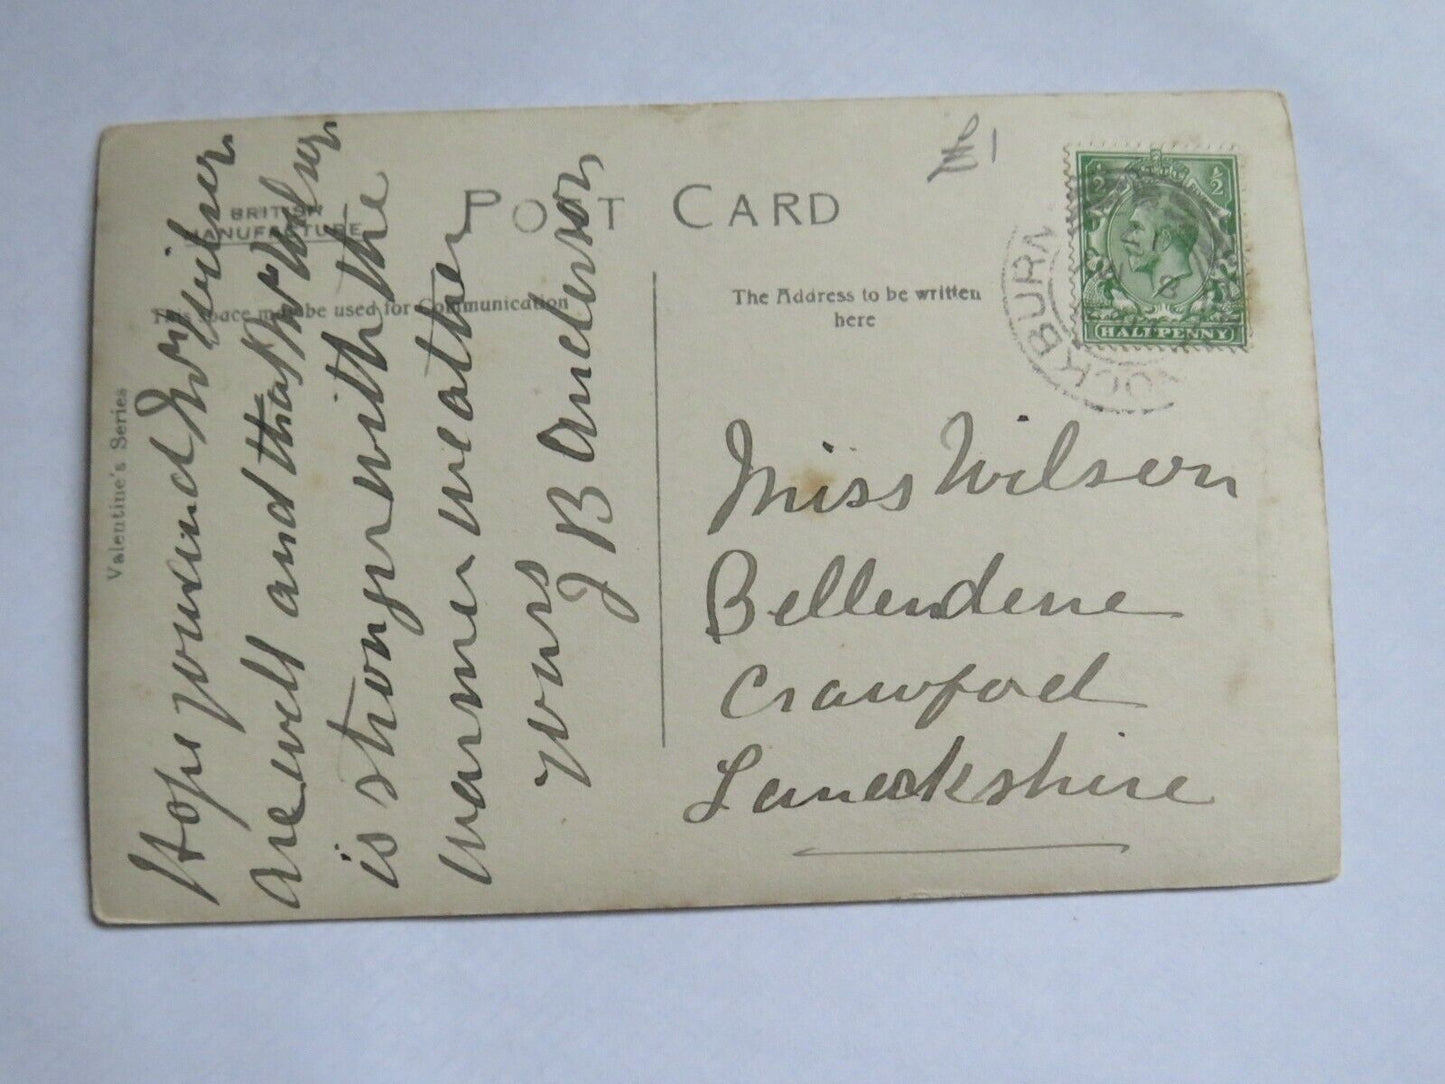 BRITISH
MANUFACTURE
POST CARD
This space may be used for Communication
The Address to be written
here
Valentine's Series
½ ½
HALFPENNY
COCKBURN
Hope you and Mr Wilson
are well and that Mr Wilson
is stronger with the
warmer weather
yours
J B Anderson
Miss Wilson
Bellendene
Crawford
Lanarkshire